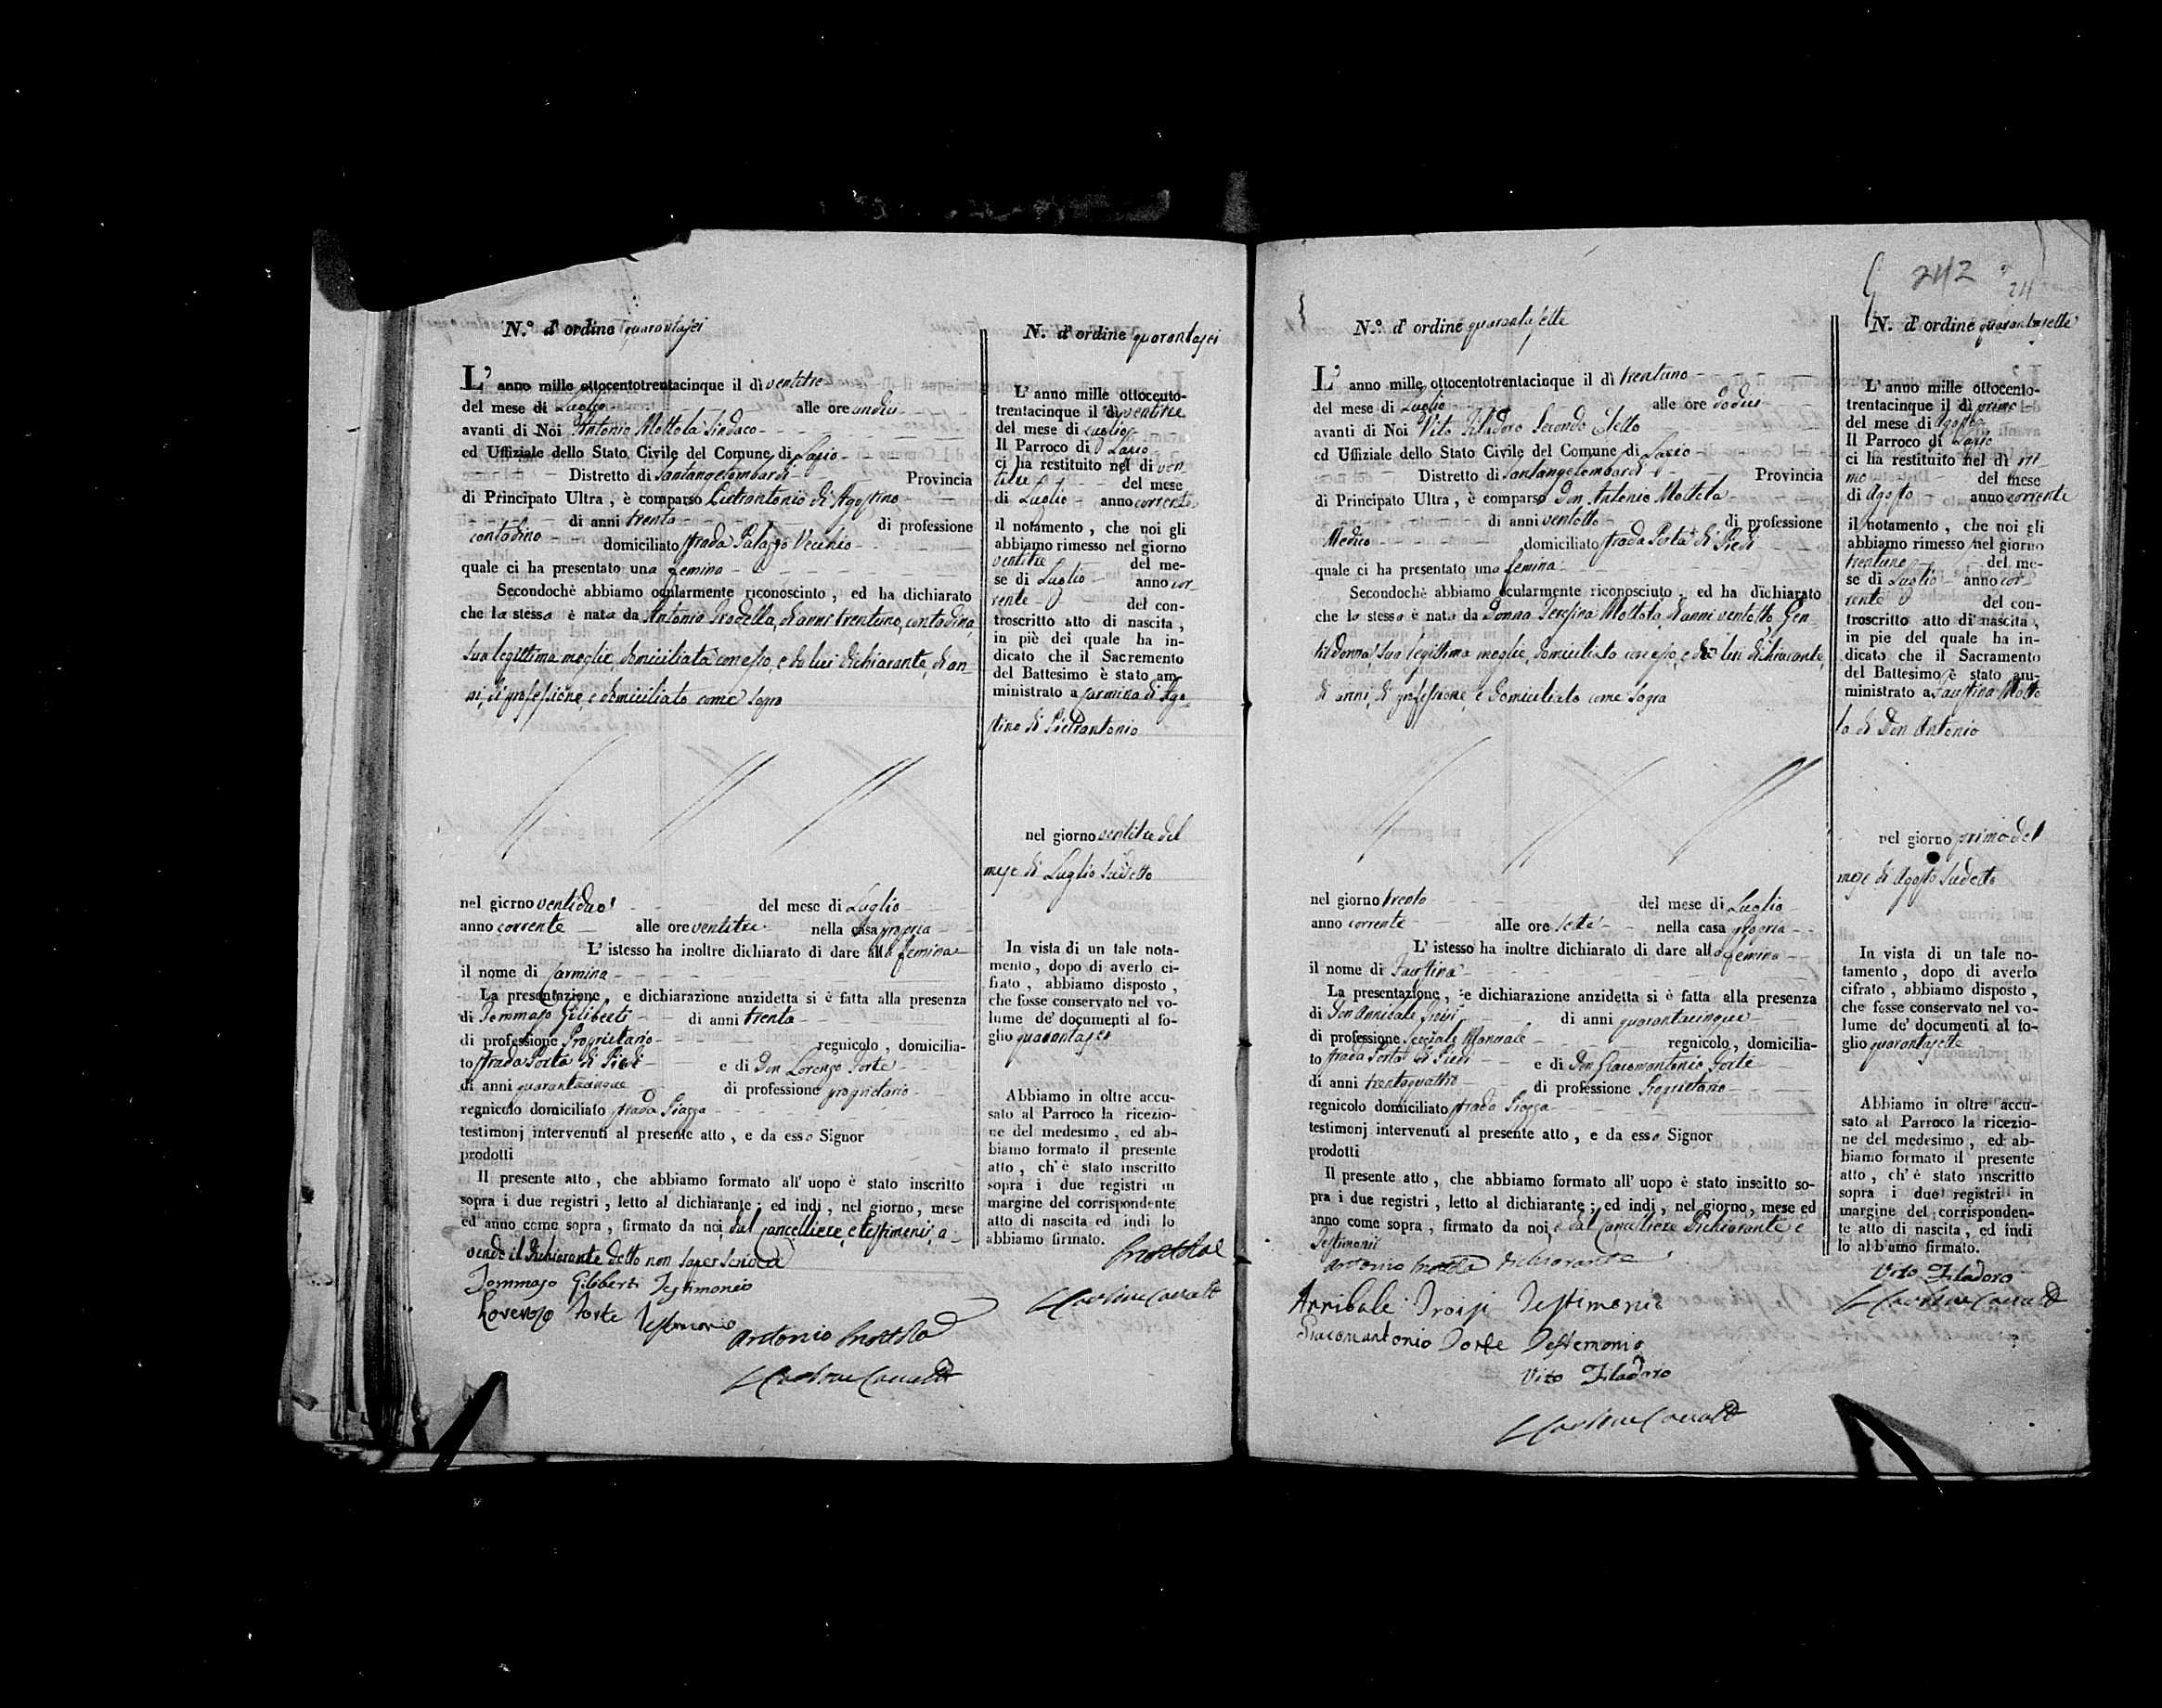 N.° d' ordine quarantasei
L' anno mille ottocentotrentacinque il dì ventitre
del mese di Luglio alle ore undici
avanti di Noi Antonio Mottola Sindaco
ed Uffiziale dello Stato Civile del Comune di Lacio
Distretto di Santangelombardi Provincia
di Principato Ultra , è comparso Pietrantonio di Agostino
di anni trenta di professione
contadino domiciliato strada Palazzo Vecchio
quale ci ha presentato una femina
Secondochè abbiamo ocularmente riconosciuto , ed ha dichiarato
che la stessa è nata da Antonia Rodella, di anni trentuno, contadina,
sua legittima moglie, domiciliata con esso, e da lui dichiarante, di an-
ni, di professione, e domiciliato come sopra
nel giorno ventidue del mese di Luglio
anno corrente alle ore ventitre nella casa propria
L' istesso ha inoltre dichiarato di dare alla femina
il nome di Carmina
La presentazione, e dichiarazione anzidetta si è fatta alla presenza
di Tommaso Giliberti di anni trenta
di professione Proprietario regnicolo , domicilia-
to strada Porta di Piedi e di Don Lorenzo Forte
di anni quarantacinque di professione proprietario
regnicolo domiciliato strada Piazza
testimonj intervenuti al presente atto , e da esso Signor
prodotti
Il presente atto , che abbiamo formato all' uopo è stato inscritto
sopra i due registri , letto al dichiarante ; ed indi , nel giorno , mese
ed anno come sopra , firmato da noi, dal Cancelliere, e testimonii, a-
vendo il Dichiarante detto non saper scrivere
Tommaso Giliberti Testimonio
Lorenzo Forte Testimonio
Antonio Mottola
N. d' ordine quarantasei
L' anno mille ottocento-
trentacinque il dì ventitre
del mese di Luglio
Il Parroco di Lacio
ci ha restituito nel dì ven
titre del mese
di Luglio anno corrente
il notamento , che noi gli
abbiamo rimesso nel giorno
ventitre del me-
se di Luglio anno cor-
rente del con-
troscritto atto di nascita ,
in piè del quale ha in-
dicato che il Sacremento
del Battesimo è stato am-
ministrato a Carmina di Ago
stino di Pietrantonio
nel giorno ventitre del
mese di Luglio sudetto
In vista di un tale nota-
mento , dopo di averlo ci-
frato , abbiamo disposto ,
che fosse conservato nel vo-
lume de' documenti al fo-
glio quarantasei
Abbiamo in oltre accu-
sato al Parroco la ricezio-
ne del medesimo , ed ab-
biamo formato il presente
atto , ch' è stato inscritto
sopra i due registri in
margine del corrispondente
atto di nascita ed indi lo
abbiamo firmato.
Mottola
242
24
N.° d' ordine quarantasette
L' anno mille ottocentotrentacinque il dì trentuno
del mese di Luglio alle ore dodici
avanti di Noi Vito Filadoro Secondo Eletto
ed Uffiziale dello Stato Civile del Comune di Lacio
Distretto di Santangelombardi Provincia
di Principato Ultra , è comparso Don Antonio Mottola
di anni ventotto di professione
Medico domiciliato strada Porta di Piedi
quale ci ha presentato una femina
Secondochè abbiamo ocularmente riconosciuto , ed ha dichiarato
che la stessa è nata da Donna Teresina Mottola, di anni ventotto, Gen-
tildonna, sua legittima moglie, domiciliata con esso, e da lui dichiarante,
di anni, di professione, e domiciliato come sopra
nel giorno trenta del mese di Luglio
anno corrente alle ore sette nella casa propria
L' istesso ha inoltre dichiarato di dare alla femina
il nome di Faustina
La presentazione , e dichiarazione anzidetta si è fatta alla presenza
di Don Annibale Troisi di anni quarantacinque
di professione Speziale Manuale regnicolo , domicilia-
to strada Porta di Piedi e di Don Giacomantonio Forte
di anni trentaquattro di professione Proprietario
regnicolo domiciliato strada Piazza
testimonj intervenuti al presente atto , e da esso Signor
prodotti
Il presente atto , che abbiamo formato all' uopo è stato inscitto so-
pra i due registri , letto al dichiarante ; ed indi , nel giorno, mese ed
anno come sopra , firmato da noi, e dal Cancelliere Dichiarante e
Testimonii
Antonio Mottola dichiarante
Annibale Troisi Testimonio
Giacomantonio Forte Testemonio
Vito Filadoro
N. d' ordine quarantasette
L' anno mille ottocento-
trentacinque il dì primo
del mese di Agosto
Il Parroco di Lacio
ci ha restituito nel dì pri
mo del mese
di Agosto anno corrente
il notamento , che noi gli
abbiamo rimesso nel giorno
trentuno del me-
se di Luglio anno cor-
rente del con-
troscritto atto di nascita ,
in pie del quale ha in-
dicato che il Sacramento
del Battesimo è stato am-
ministrato a Faustina Motto
la di Don Antonio
nel giorno primo del
mese di Agosto sudetto
In vista di un tale no-
tamento , dopo di averlo
cifrato , abbiamo disposto ,
che fosse conservato nel vo-
lume de' documenti al fo-
glio quarantasette
Abbiamo in oltre accu-
sato al Parroco la ricezio-
ne del medesimo , ed ab-
biamo formato il presente
atto , ch' è stato inscritto
sopra i due registri in
margine del corrisponden-
te atto di nascita , ed indi
lo abbiamo firmato.
Vito Filadoro